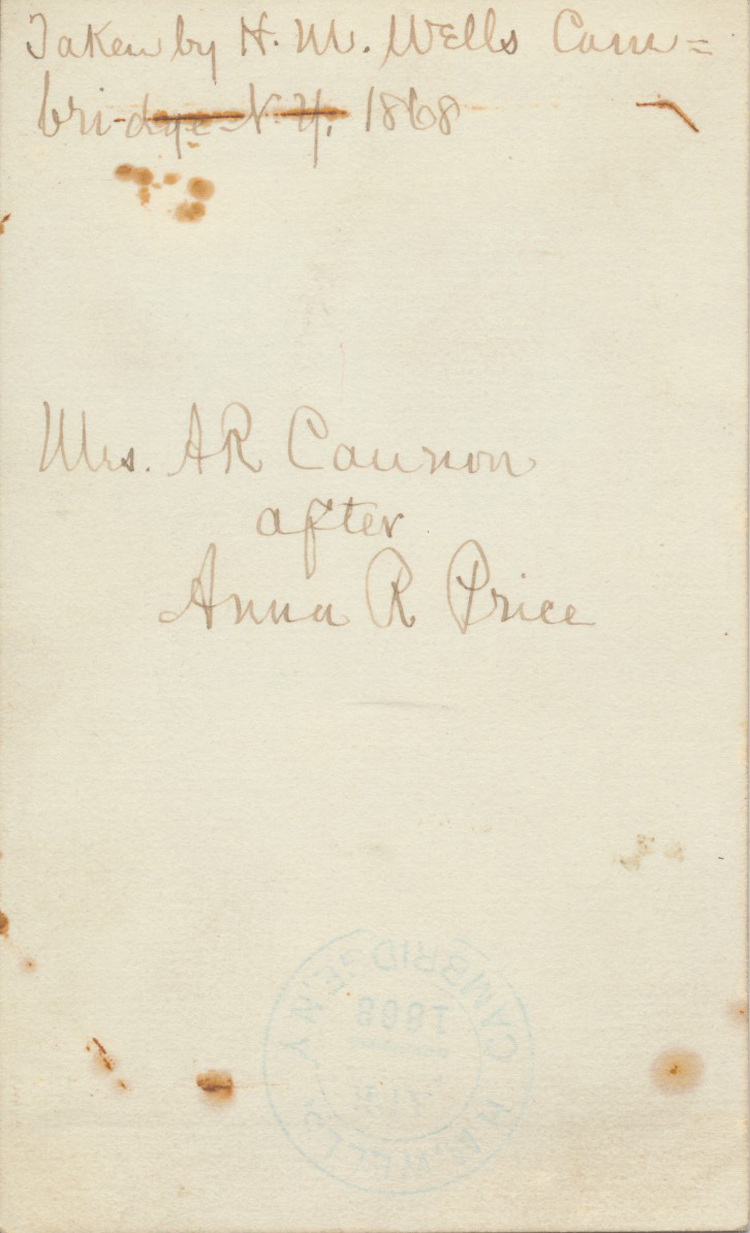 Taken by H. M. Wells Cam=
bridge N. Y. 1868
Mrs. AR Cannon
after
Anna R Price
H. M. WELLS,
CAMBRIDGE, N.Y.
1868